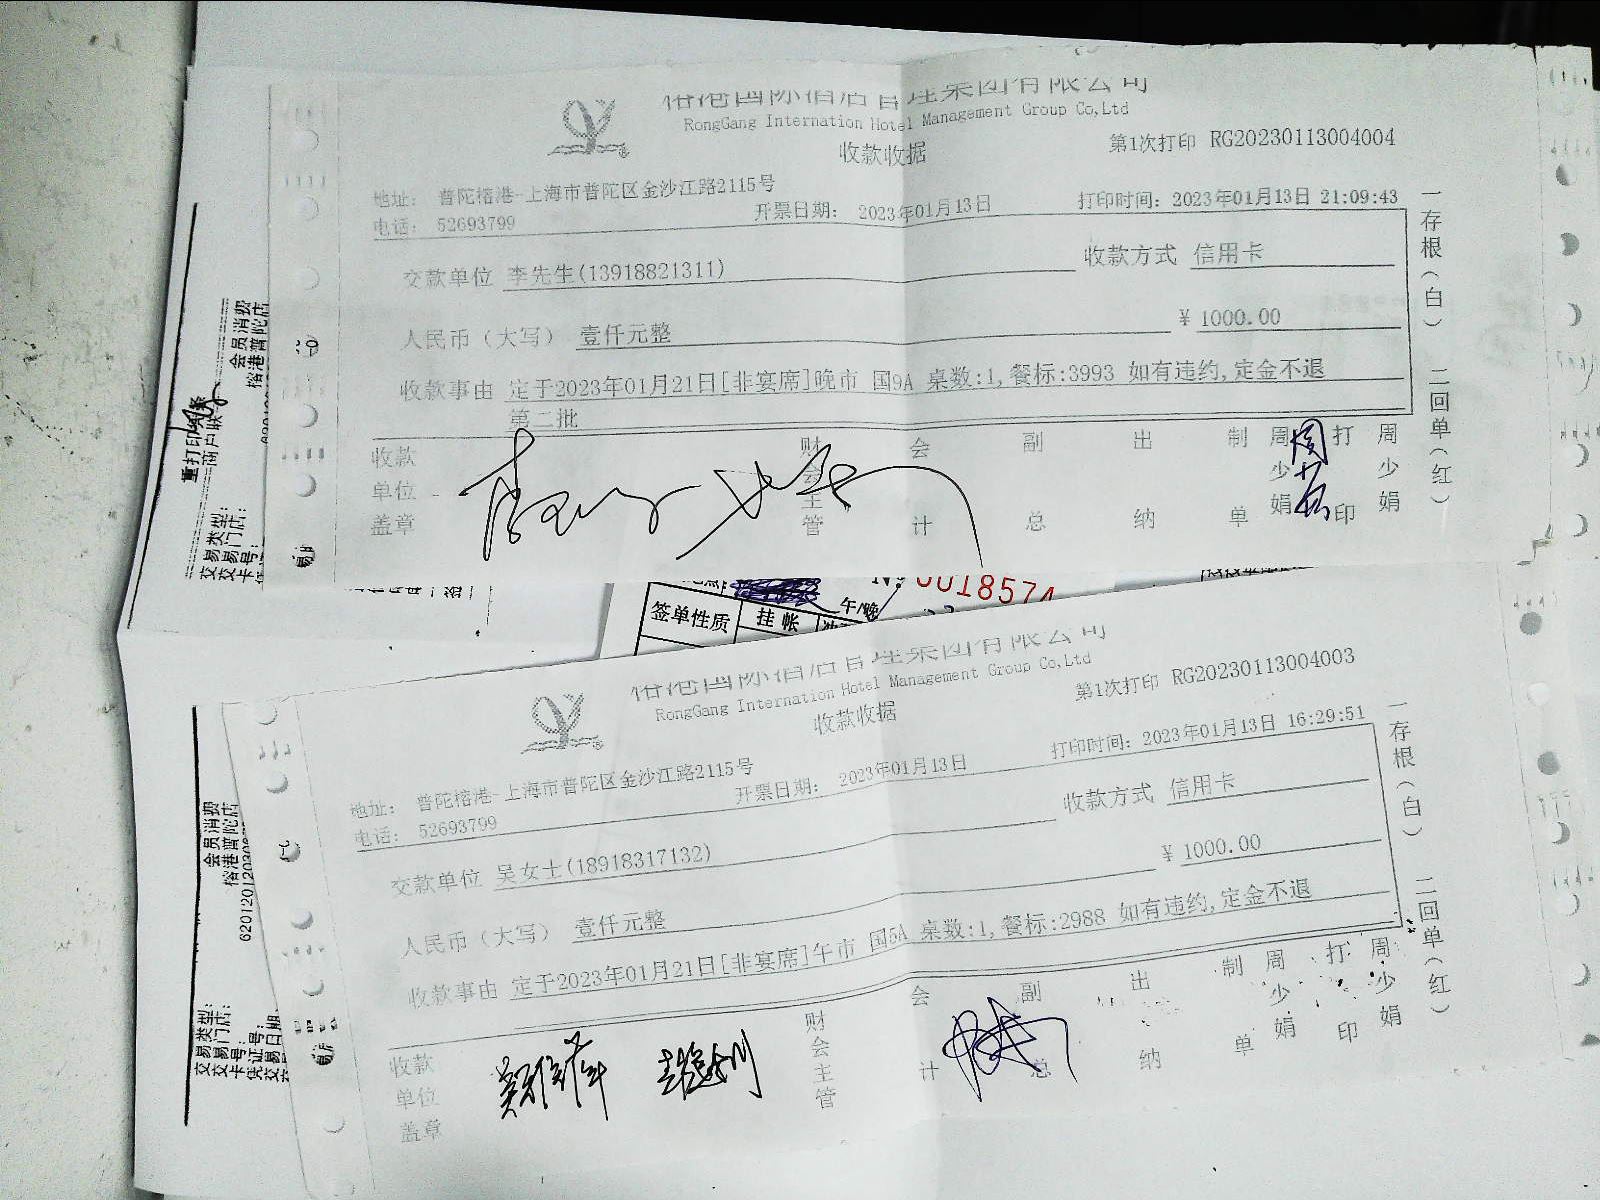 榕港国际酒店管理集团有限公司
RongGang Internation Hotel Management Group Co,Ltd
收款收据
第1次打印 RG20230113004004
地址： 普陀榕港-上海市普陀区金沙江路2115号
电话： 52693799
开票日期： 2023年01月13日
打印时间：2023年01月13日 21:09:43
交款单位 李先生(13918821311)
收款方式 信用卡
人民币（大写） 壹仟元整
¥ 1000.00
收款事由 定于2023年01月21日[非宴席]晚市 国9A 桌数:1,餐标:3993 如有违约,定金不退
第二批
收款单位盖章
财会主管
会计
副总
出纳
制单
周少娟
周
打印
周少娟
一存根（白） 二回单（红）
会员消费
榕港普陀店
重打印
商户联
交易类型：
交易门店：
卡号：
No 0018574
签单性质
挂帐
午/晚
榕港国际酒店管理集团有限公司
RongGang Internation Hotel Management Group Co,Ltd
收款收据
第1次打印 RG20230113004003
地址： 普陀榕港-上海市普陀区金沙江路2115号
电话： 52693799
开票日期： 2023年01月13日
打印时间：2023年01月13日 16:29:51
交款单位 吴女士(18918317132)
收款方式 信用卡
人民币（大写） 壹仟元整
¥ 1000.00
收款事由 定于2023年01月21日[非宴席]午市 国5A 桌数:1,餐标:2988 如有违约,定金不退
收款单位盖章
财会主管
会计
副总
出纳
制单
周少娟
打印
周少娟
一存根（白） 二回单（红）
会员消费
榕港普陀店
交易类型：
交易门店：
卡号：
凭证号：
交易日期